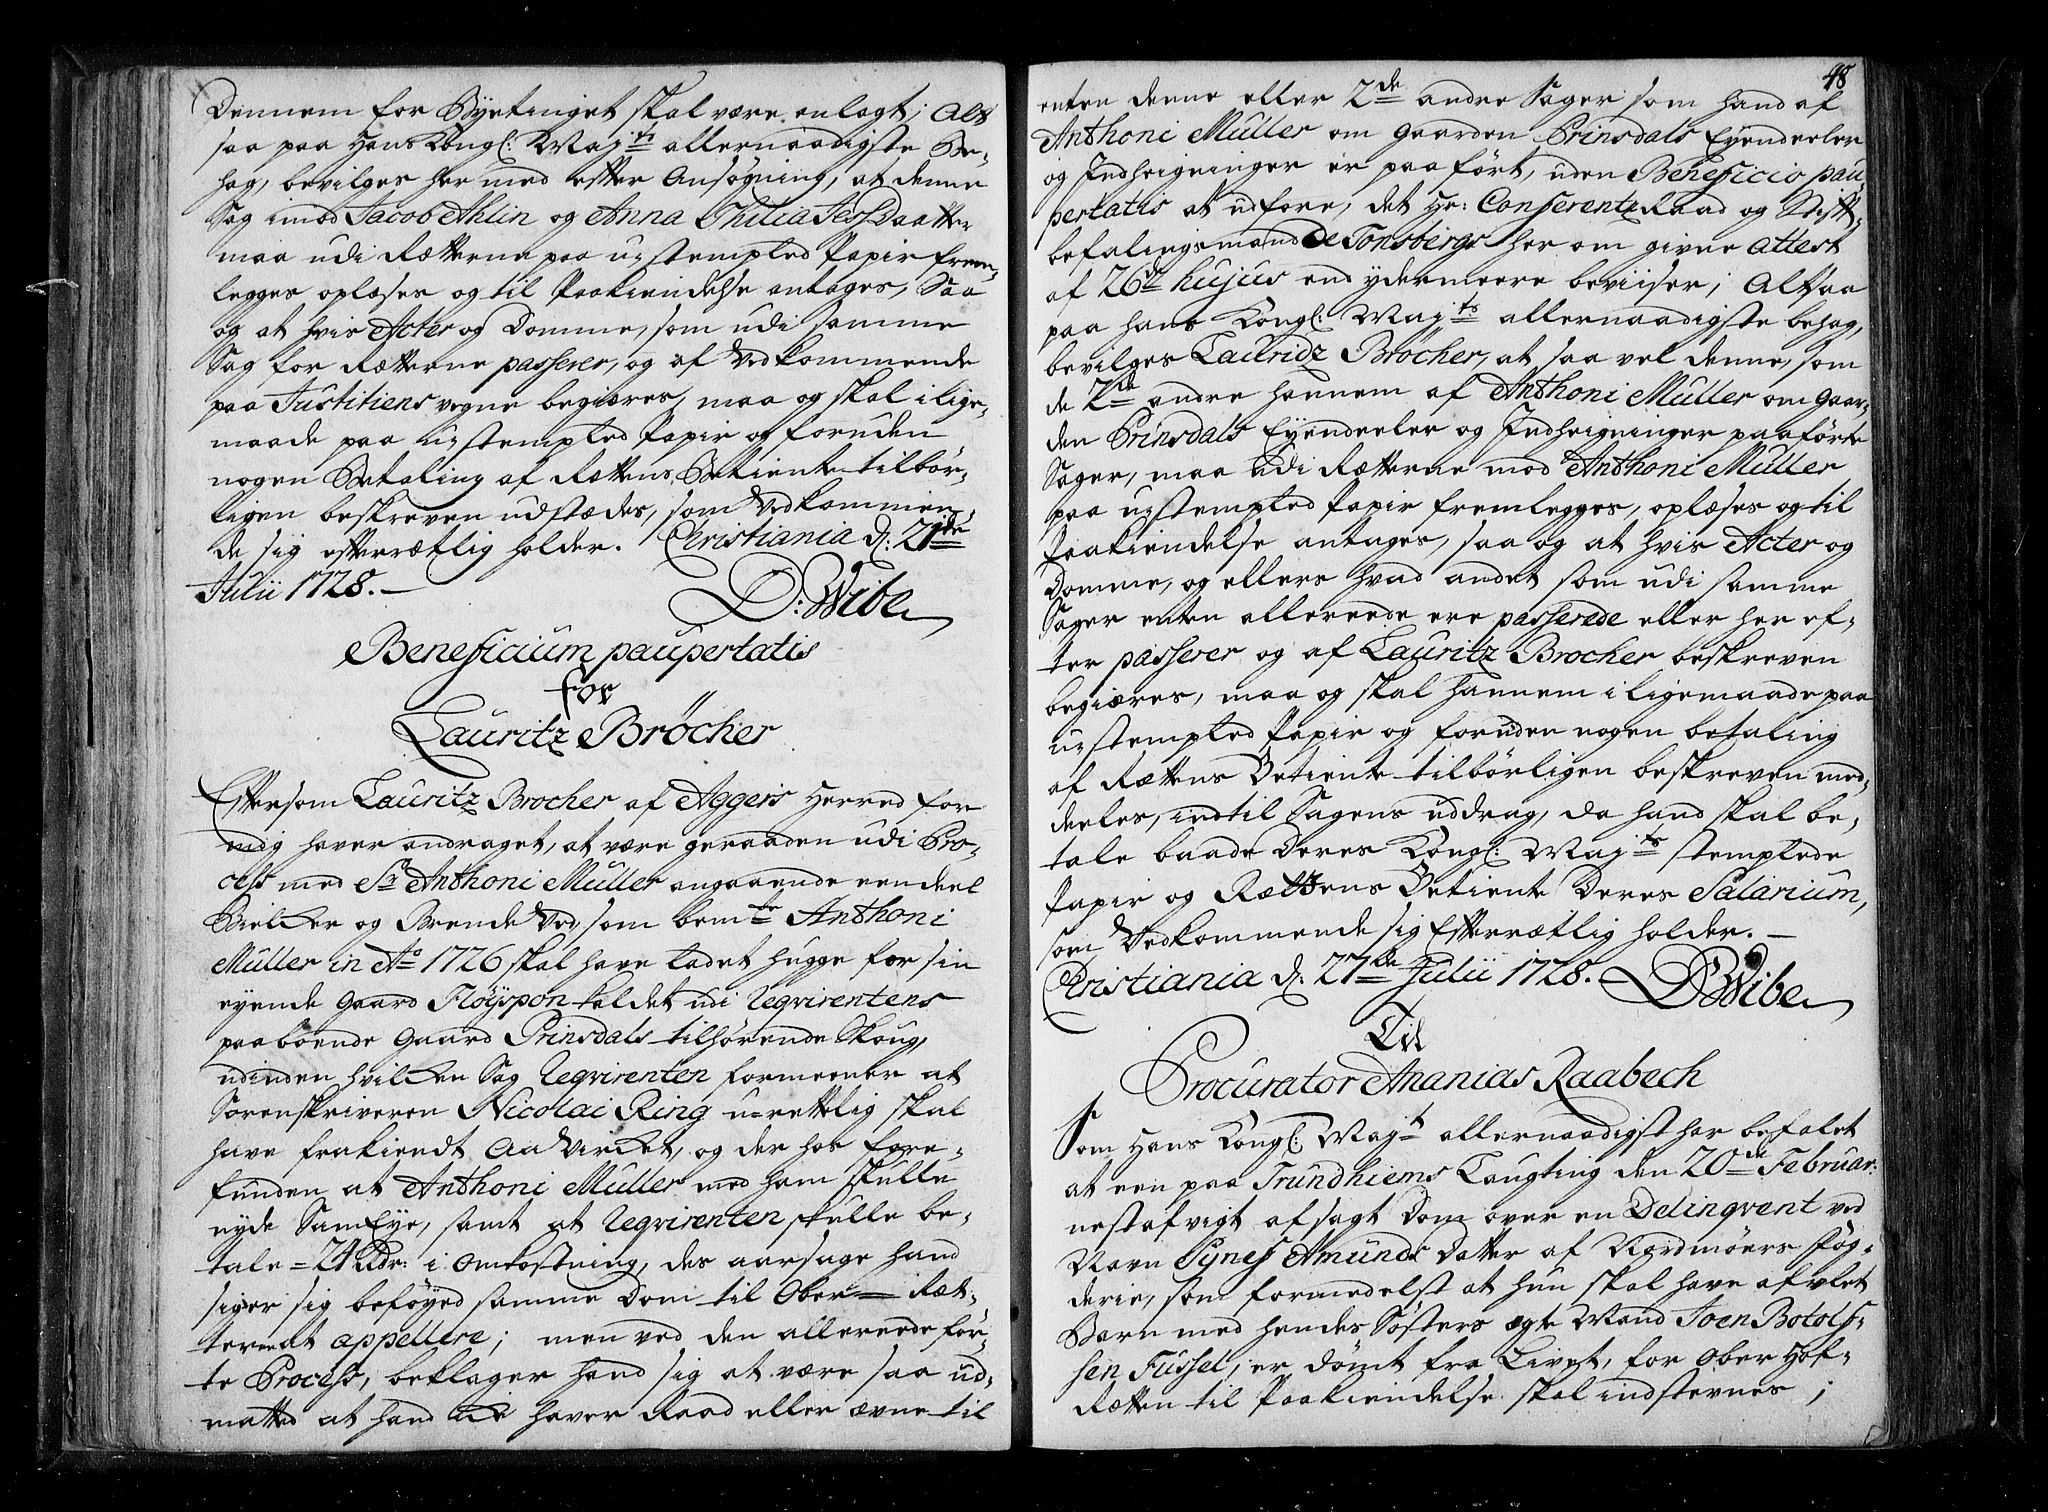 Dennem for Byetinget skal være anlagt; Alt
saa paa Hans Kongl: Maj:ts allernaadigste Be-
hag, bevilges her med efter Ansøgning, at denne
Sag imod Jacob Ahlin og Anna Chilia Jessdaatter
maa udi Rætterne paa u-stempled Papir frem-
legges oplæses og til Paakiendelse antages, Saa
og at hvis Acter og Domme, som udi samme
Sag for Rætterne passerer, og af Vedkommende
paa Justitiens vegne begiæres, maa og skal i lige-
maade paa u-stempled Papir og foruden
nogen Betaling af Rættens Betiente tilbør-
ligen beskreven udstædes, som Vedkommen-
de sig efterrætlig holder. Christiania d: 21de
Julii 1728.—
D:Wibe
Beneficium paupertatis
for
Lauritz Bröcher
Eftersom Lauritz Brocher af Aggers Herred for
mig haver andraget, at være geraaden udi Pro-
cess med Sr Anthoni Müller angaaende eendeel
Bielker og Brende Ved, som bemte Anthoni
Müller in Ao 1726 skal have ladet hugge for sin
eyende Gaard Flöyspon kaldet udi Reqvirentens
paaboende Gaard Prinsdals tilhørende Skoug,
udinden hvilken Sag Reqvirenten formeener at
Sorenskriveren Nicolai Ring u-rettelig skal
have frakiendt Aavircket, og der hos fore-
funden at Anthoni Müller med ham skulle
nyde SamEye, samt at Reqvirenten skulle be-
tale =24 Rdr: i Omkostning, des aarsage hand
siger sig beføyed samme Dom til Ober— Ræt-
terne at appellere; men ved den allereede før-
te Process, beklager hand sig at være saa ud-
matted at hand icke haver Raad eller ævne til
48
enten denne eller 2de andre Sager som hand af
Anthoni Müller om Gaarden Prinsdals Eyendeeler
og Indheigninger er paaført, uden Beneficio pau-
pertatis at udføre, det Hr: ConferentzRaad og Stift-
befalingsmand De Tonsbergs her om givne Attest
af 26de hujus end ydermeere beviiser; Altsaa
paa Hans Kongl: Maj:ts allernaadigste behag,
bevilges Lauridz Bröcher, at saa vel denne, som
de 2de andre hannem af Anthoni Müller om Gaar-
den Prinsdals Eyendeeler og Indheigninger paaførte
Sager, maa udi Rætterne mod Anthoni Müller
paa u-stempled Papir fremlegges, oplæses og til
Paakiendelse antages, saa og at hvis Acter og
Domme, og ellers hvad andet som udi samme
Sager enten allereede ere passerede eller her ef-
ter passerer og af Lauritz Brocher beskreven
begiæres, maa og skal hannem i ligemaade paa
u-stempled Papir og foruden nogen betaling
af Rættens Betiente tilbørligen beskreven med-
deeles, indtil Sagens uddrag, da hand skal be-
tale baade Deres Kongl: Maj:ts stemplede
Papir og Rættens Betiente Deres Salarium,
som Vedkommende sig Efterrætlig holder.—
Christiania d: 27de Julii 1728.— DWibe
Til
Procurator Ananias Raabech
Som Hans Kongl: Maj:t allernaadigst har befalet
at een paa Trundhiems Laugting den 20de Februar:
nestafvigt afsagt Dom over en Delinqvent ved
Navn Synes Amunds Datter af Nordmøers Fog-
derie, som formedelst at hun skal have aflet
Barn med hendes Søsters ægte Mand Joen Botols-
sen Fussel, er dømt fra Livet, for Ober Hof-
Rætten til Paakiendelse skal indstevnes;